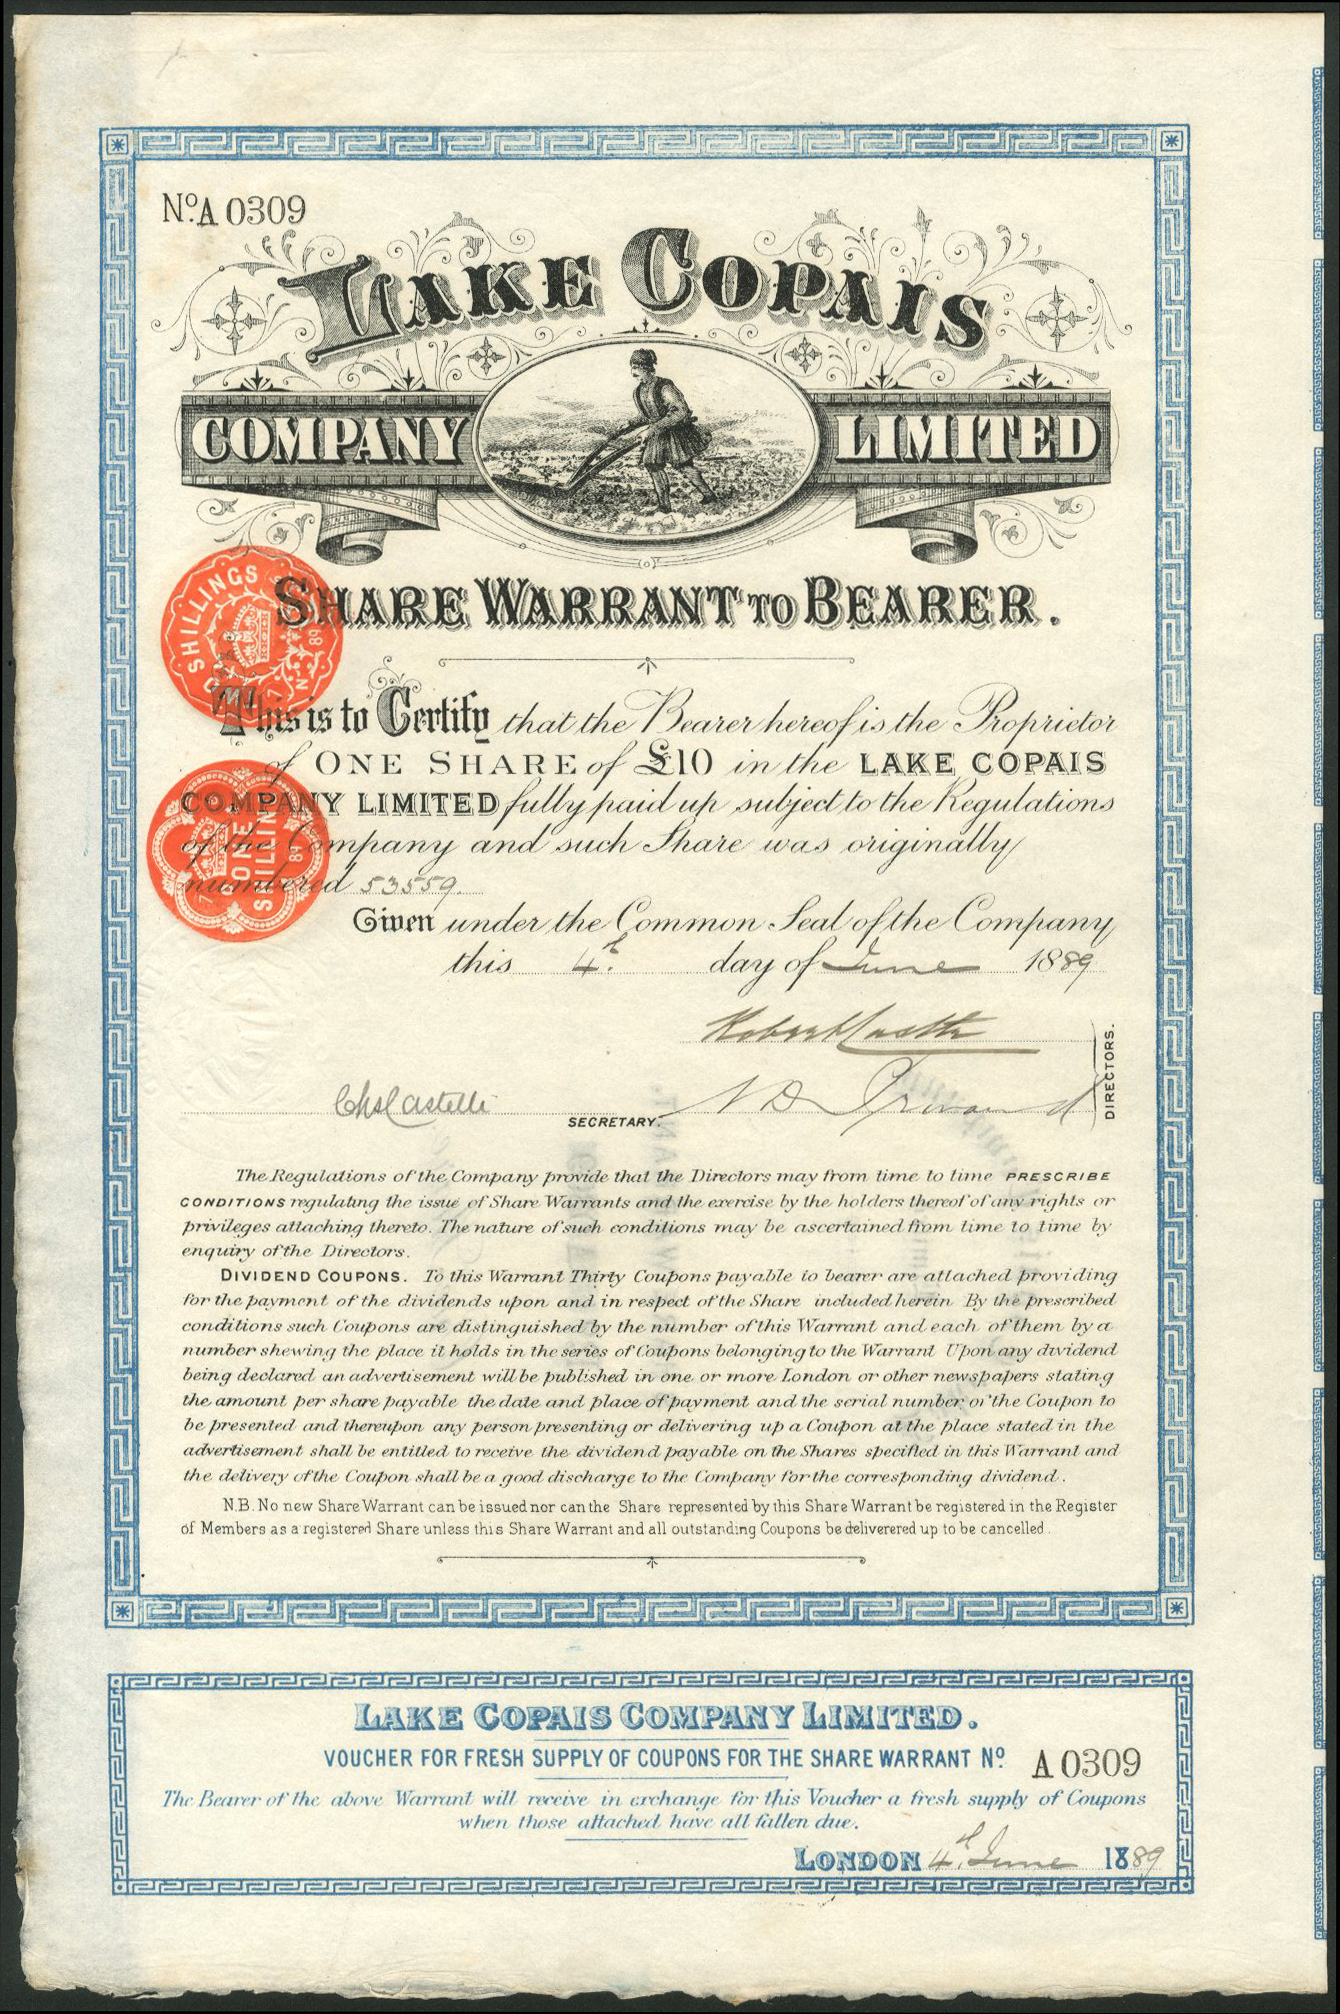 No. A 0309
LAKE COPAIS
COMPANY LIMITED
SHARE WARRANT TO BEARER.
SHILLINGS
7 89
This is to Certify that the Bearer hereof is the Proprietor
of ONE SHARE of £10 in the LAKE COPAIS
COMPANY LIMITED fully paid up subject to the Regulations
of the Company and such Share was originally
numbered 53559.
ONE SHILLING
7 89
Given under the Common Seal of the Company
this 4th day of June 1889
DIRECTORS.
Chs Castelli
SECRETARY.
The Regulations of the Company provide that the Directors may from time to time PRESCRIBE
CONDITIONS regulating the issue of Share Warrants and the exercise by the holders thereof of any rights or
privileges attaching thereto. The nature of such conditions may be ascertained from time to time by
enquiry of the Directors.
DIVIDEND COUPONS. To this Warrant Thirty Coupons payable to bearer are attached providing
for the payment of the dividends upon and in respect of the Share included herein By the prescribed
conditions such Coupons are distinguished by the number of this Warrant and each of them by a
number shewing the place it holds in the series of Coupons belonging to the Warrant Upon any dividend
being declared an advertisement will be published in one or more London or other newspapers stating
the amount per share payable the date and place of payment and the serial number of the Coupon to
be presented and thereupon any person presenting or delivering up a Coupon at the place stated in the
advertisement shall be entitled to receive the dividend payable on the Shares specified in this Warrant and
the delivery of the Coupon shall be a good discharge to the Company for the corresponding dividend.
N.B. No new Share Warrant can be issued nor can the Share represented by this Share Warrant be registered in the Register
of Members as a registered Share unless this Share Warrant and all outstanding Coupons be deliverered up to be cancelled.
LAKE COPAIS COMPANY LIMITED.
VOUCHER FOR FRESH SUPPLY OF COUPONS FOR THE SHARE WARRANT No. A 0309
The Bearer of the above Warrant will receive in exchange for this Voucher a fresh supply of Coupons
when those attached have all fallen due.
LONDON 4th June 1889